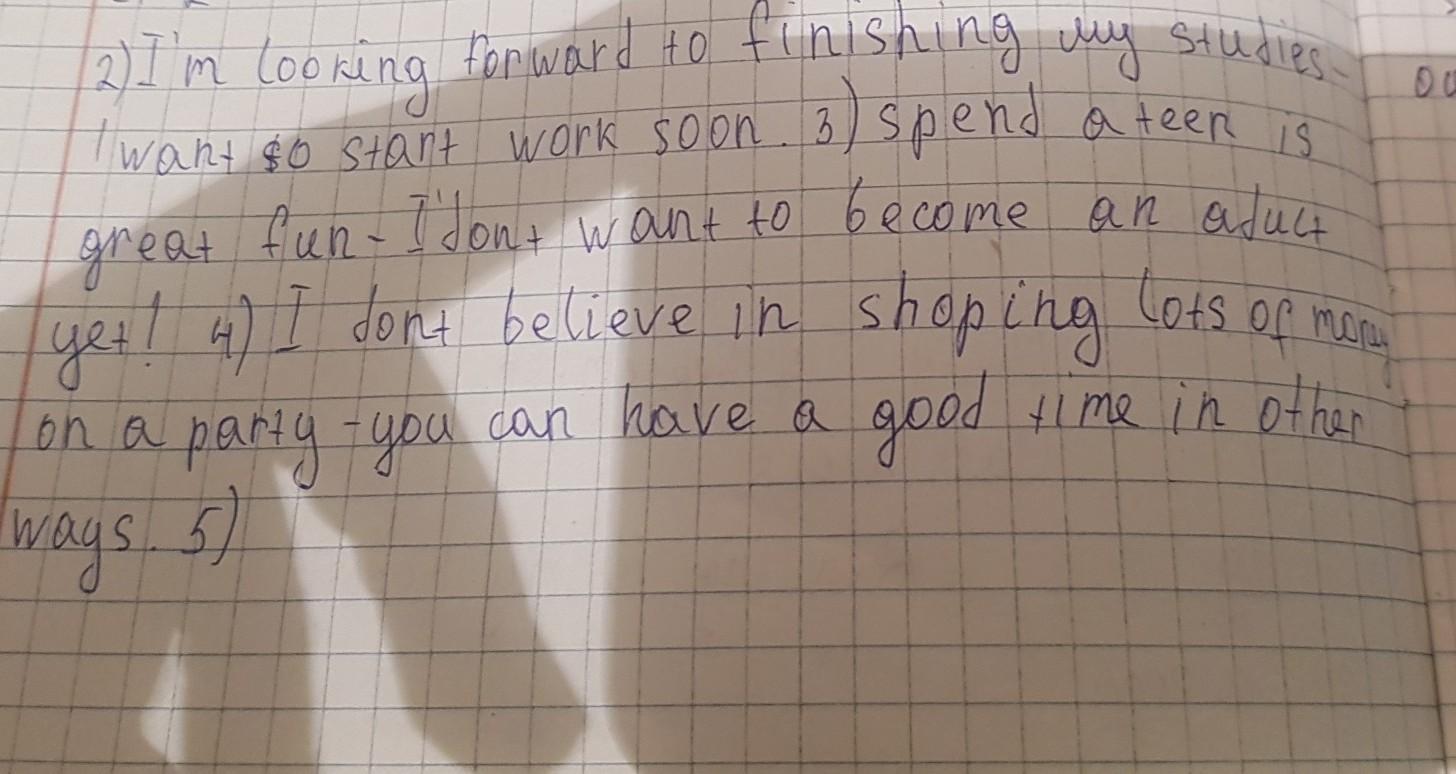 2) I'm looking forward to finishing my studies-
I want to start work soon. 3) spend a teen is
great fun - I don't want to become an adult
yet! 4) I don't believe in shoping lots of
on a party - you can have a good time in other
ways. 5)